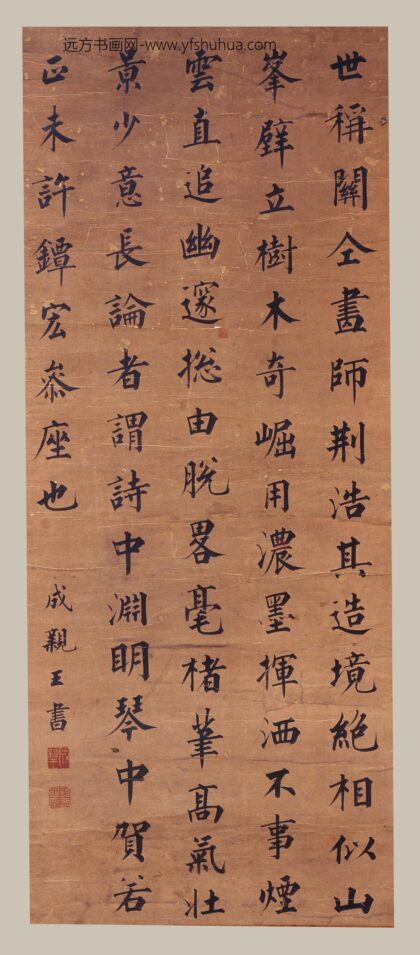 远方书画网-www.yfshuhua.com
世稱關仝畵師荆浩其造境絶相似山
峯壁立樹木奇崛用濃墨揮洒不事煙
雲直追幽邃揔由脱畧毫楮筆高氣壯
景少意長論者謂詩中淵明琴中賀若
正未許鐔宏叅座也
成親王書